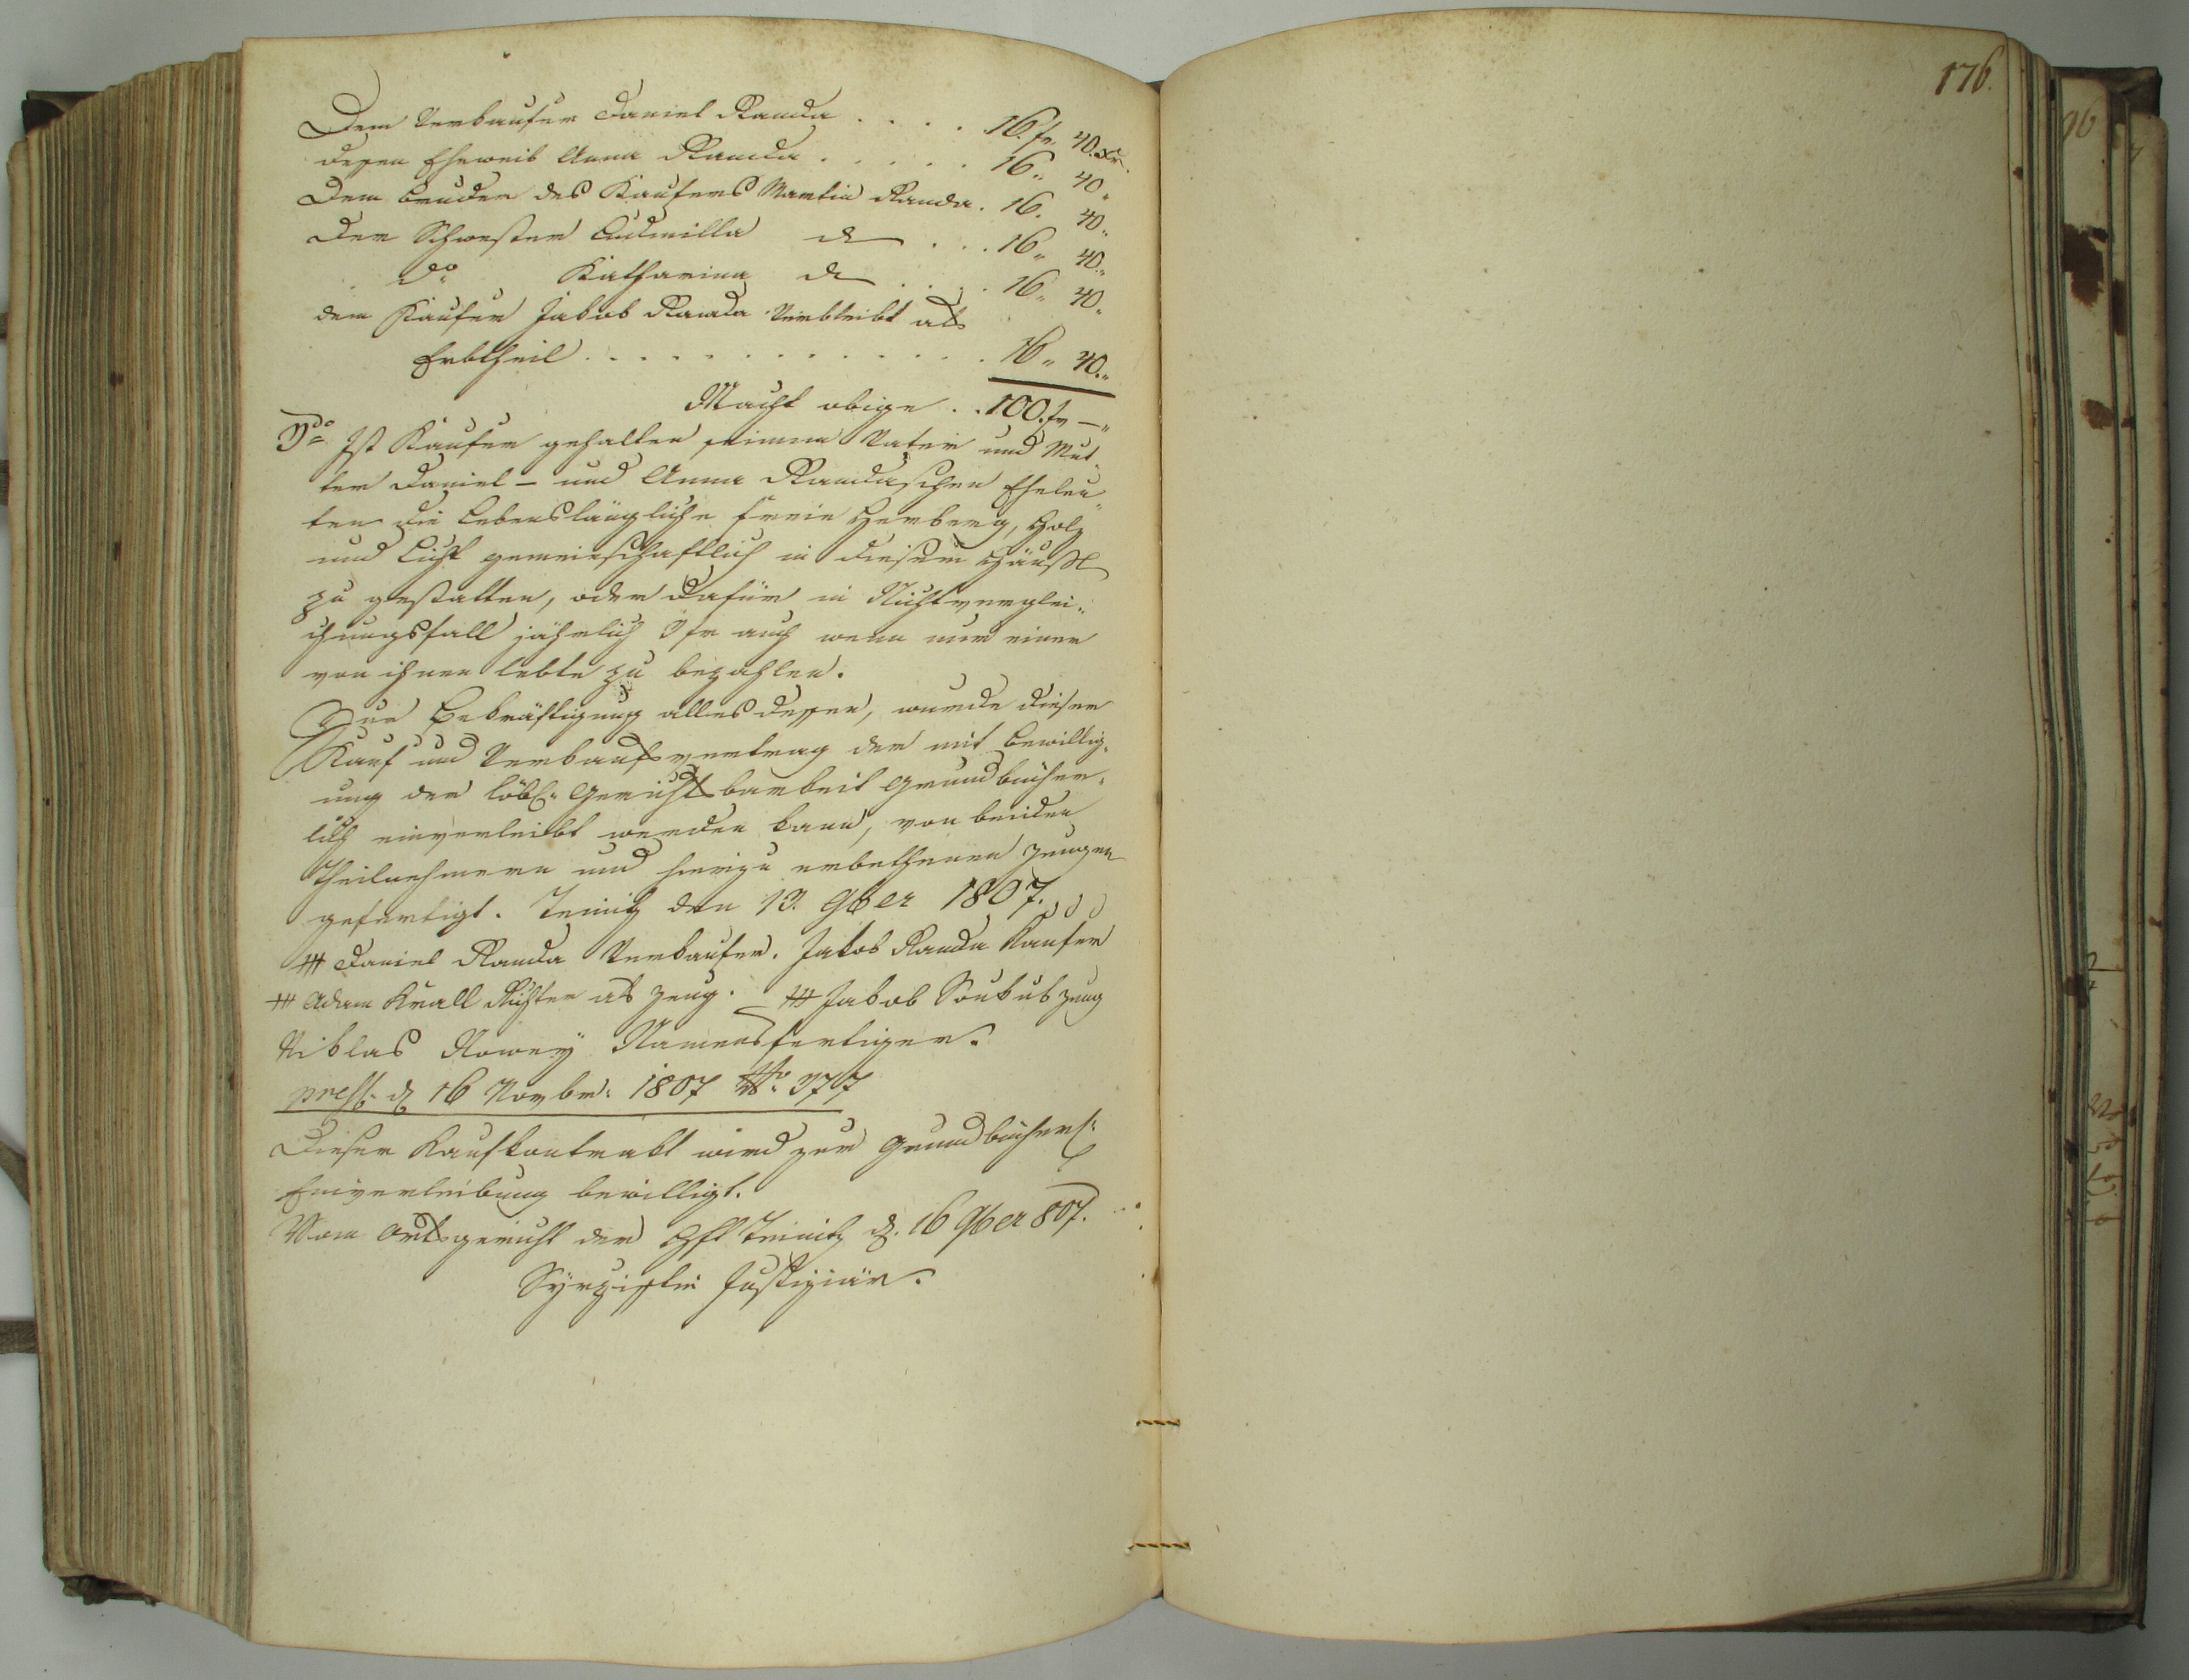 176.
Dem Verkaufer Daniel Randa . . . . 16. fr. 40. Xr.
dessen Eheweib Anna Randa . . . . . 16 „ 40 „
Dem Bruder des Kaufers Martin Randa . 16. 40 „
Der Schwester Ludmilla d . . . 16 „ 40 „
do Katharina d . . . . 16 „ 40 „
dem Kaufer Jakob Randa verbleibt als
Erbtheil . . . . . . . . . . . . . 16 „ 40 „
Macht obige . . 100. fr — „
3do Ist Kaufer gehalten seinem Vater und Mut„
ter Daniel – und Anna Randaschen Eheleu„
ten die Lebenslängliche freie Herberg, Holz
und Licht gemeinschaftlich in diesem Häußl
zu gestatten, oder dafür in Nichtverglei„
chungsfall jährlich 3 fr auch wenn nur einer
von ihnen lebte zu bezahlen.
Zur Bekräftigung alles dessen, wurde dieser
Kauf und Verkaufsvertrag der mit Bewillig„
ung der löbl: Gerichtsbarkeit grundbücher„
lich einverleibt werden kann, von beiden
Theilnehmern und hierzu erbethenen Zeugen
gefertigt. Teinitz den 13. 9ber 1807.
+++ Daniel Randa Verkaufer. Jakob Randa Kaufer
+++ Adam Krall Richter als Zeug. +++ Jakob Soukub Zeug
Niklas Namensfertiger.
press. d 16 Novbr: 1807 No. 377
Dieser Kaufkontrakt wird zur grundbücherl:
Einverleibung bewilligt.
Vom Ortsgericht der Hft Teinitz d. 16 9ber 807.
Justiziär.